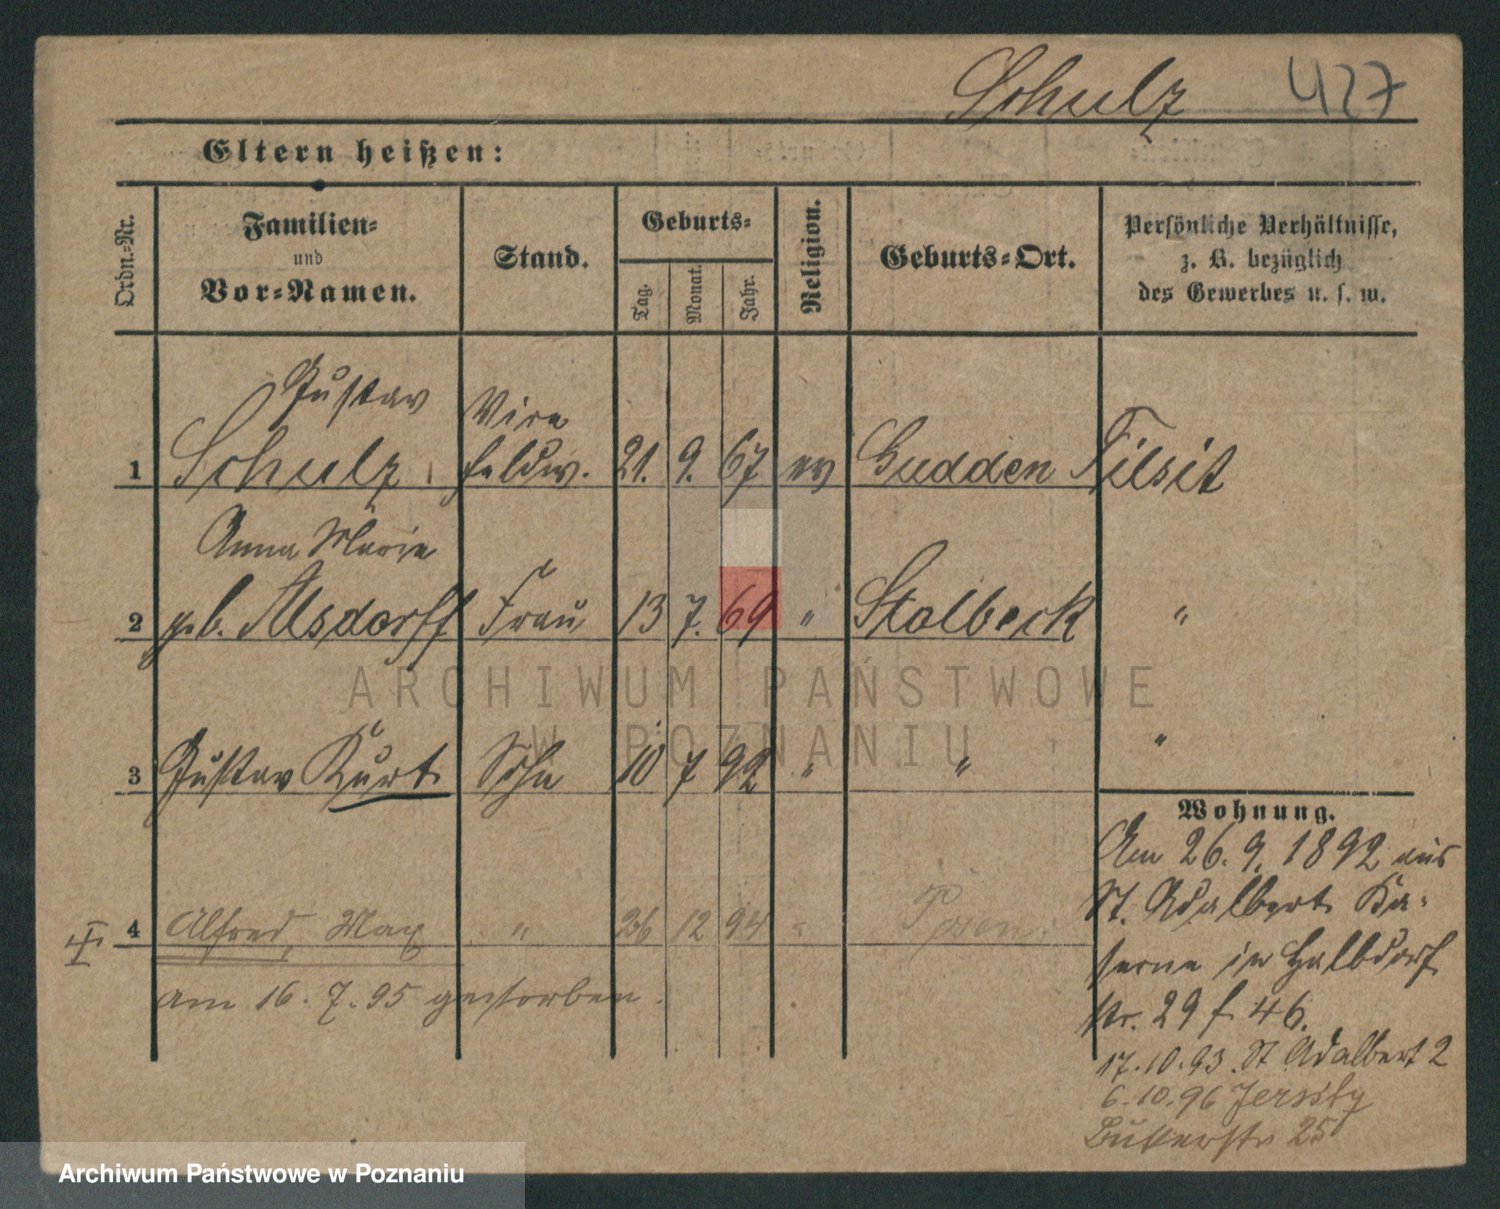 Schulz 427
Eltern heißen:
Ordn.-Nr.
Familien-
und
Vor-Namen.
Stand.
Geburts-
Tag.
Monat.
Jahr.
Religion.
Geburts-Ort.
Persönliche Verhältnisse,
z. B. bezüglich
des Gewerbes u. s. w.
Gustav
Vice
1 Schulz, feldw. 21. 9. 67 ev Gudden Tilsit
Anna Marie
2 geb. Alsdorff Frau 13 7. 69 " Stolbeck "
3 Gustav Kurt Sohn 10 7 92 " " "
Wohnung.
Am 26. 9. 1892 aus
St. Adalbert Ka-
serne in Halbdorf
str. 29 f. 46.
17.10.93. St Adalbert 2
6.10.96 Jersitz
25
4 Alfred, Max " 26 12 94 " Posen.
am 16. 7. 95 gestorben.
ARCHIWUM PAŃSTWOWE
W POZNANIU
Archiwum Państwowe w Poznaniu